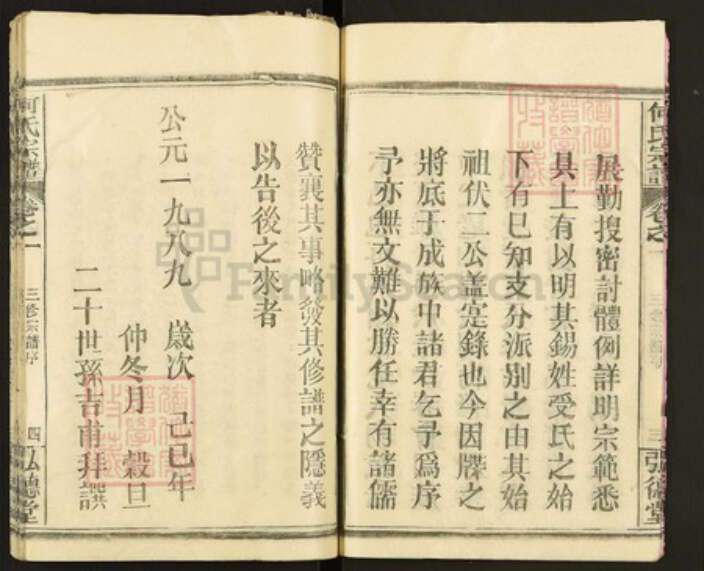 何氏宗譜
卷之一
三修宗譜序
三
弘德堂
展勤搜密討體例詳明宗範悉
具上有以明其錫姓受氏之始
下有已知支分派别之由其始
祖伏二公盖寔錄也今因牒之
將底于成族中諸君乞予爲序
予亦無文難以勝任幸有諸儒
贊襄其事略發其修譜之隱義
以告後之來者
公元一九八九 歲次 己巳年
仲冬月 穀旦
二十世孫吉甫拜譔
何氏宗譜
卷之一
三修宗譜序
四
弘德堂
FamilySearch